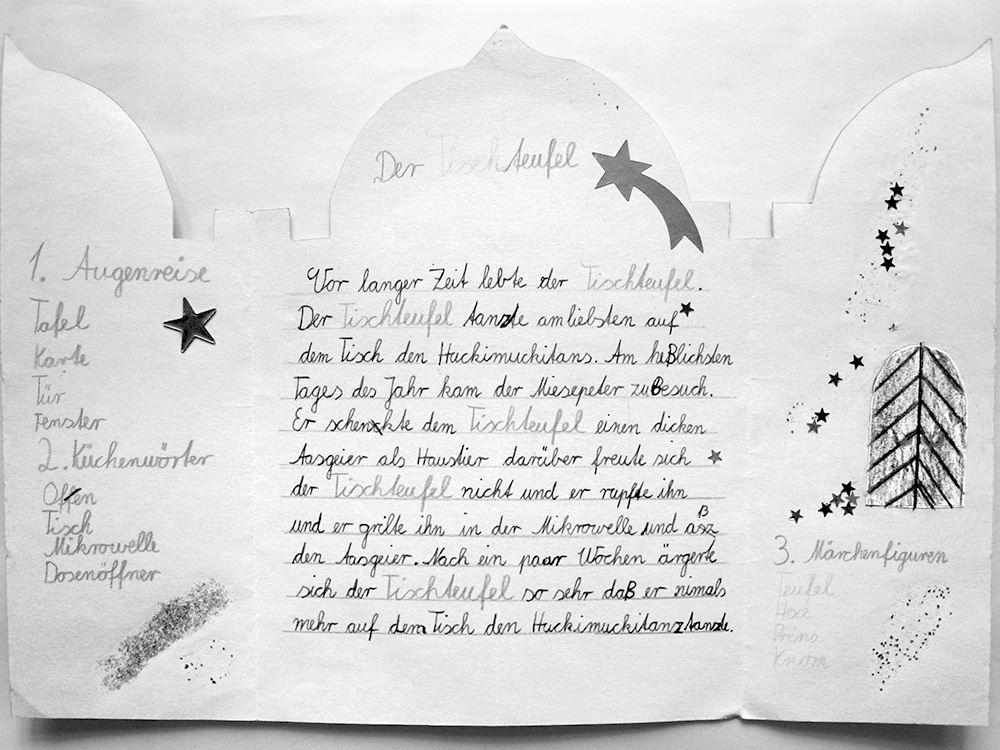 Der Tischteufel
1. Augenreise
Tafel
Karte
Tür
Fenster
2. Küchenwörter
Offen
Tisch
Mikrowelle
Dosenöffner
Vor langer Zeit lebte der Tischteufel.
Der Tischteufel tanzte am liebsten auf
dem Tisch den Huckimuckitans. Am heßlichsten
Tages des Jahr kam der Miesepeter zu Besuch.
Er schenkte dem Tischteufel einen dicken
Aasgeier als Haustier darüber freute sich
der Tischteufel nicht und er rupfte ihn
und er grilte ihn in der Mikrowelle und aß
den Aasgeier. Nach ein paar Wochen ärgerte
sich der Tischteufel so sehr daß er nimals
mehr auf dem Tisch den Huckimuckitanz tanzte.
3. Märchenfiguren
Teufel
Hexe
Prins